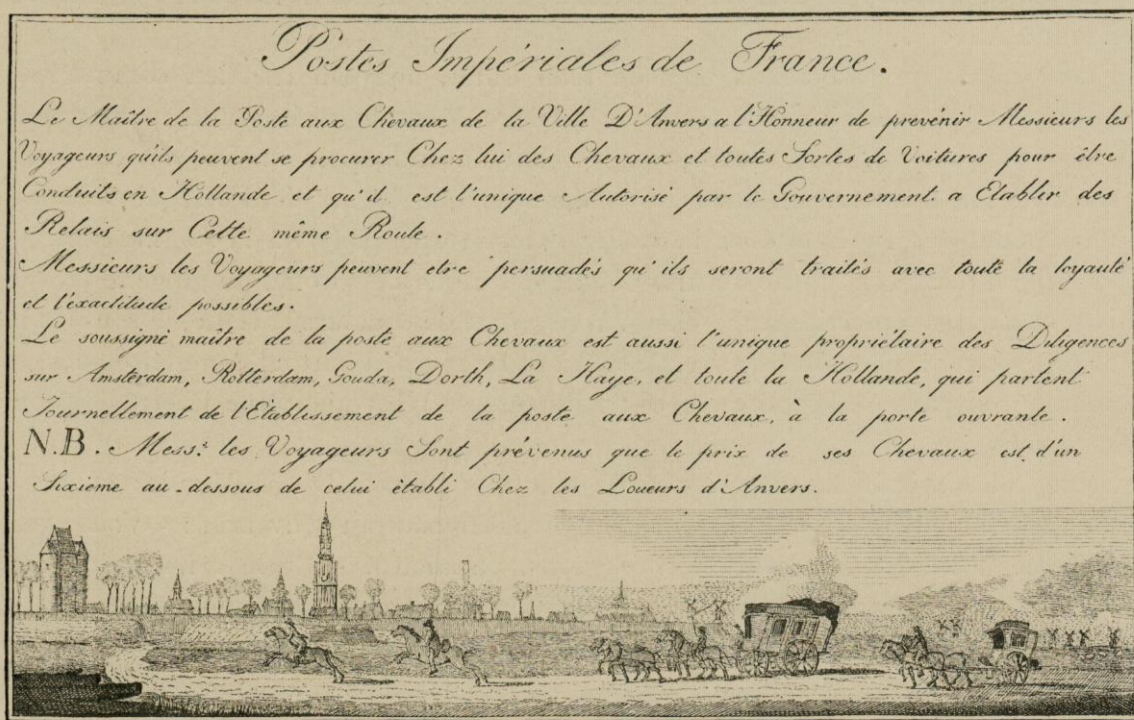 Postes Impériales de France.
Le Maître de la Poste aux Chevaux de la Ville D'Anvers a l'Honneur de prevénir Messieurs les
Voyageurs qu'ils peuvent se procurer Chez lui des Chevaux et toutes Sortes de Voitures pour être
Conduits en Hollande et qu'il est l'unique Autorisé par le Gouvernement a Etablir des
Relais sur Cette même Route.
Messieurs les Voyageurs peuvent etre persuadés qu'ils seront traités avec toute la loyauté
et l'exactitude possibles.
Le soussigné maître de la poste aux Chevaux est aussi l'unique propriétaire des Diligences
sur Amsterdam, Rotterdam, Gouda, Dorth, La Haye, et toute la Hollande, qui partent
Journellement de l'Etablissement de la poste aux Chevaux, à la porte ouvrante.
N.B. Mess.^rs les Voyageurs Sont prévenus que le prix de ses Chevaux est d'un
Sixieme au-dessous de celui établi Chez les Loueurs d'Anvers.